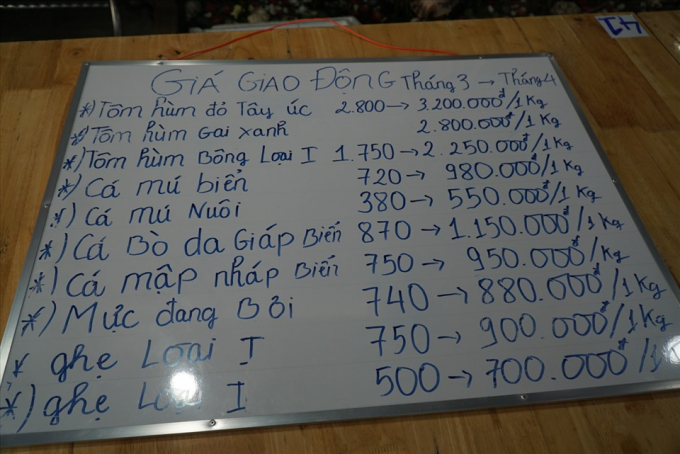 GIÁ GIAO ĐỘNG Tháng 3 → Tháng 4
*) Tôm hùm đỏ Tây úc 2.800 → 3.200.000đ/1 Kg
*) Tôm hùm Gai xanh 2.800.000đ/1 Kg
*) Tôm hùm Bông Loại I 1.750 → 2.250.000đ/1 Kg
*) Cá mú biển 720 → 980.000đ/1 Kg
*) Cá mú Nuôi 380 → 550.000đ/1 Kg
*) Cá Bò da Giáp Biển 870 → 1.150.000đ/1 Kg
*) Cá mập nháp Biển 750 → 950.000đ/Kg
*) Mực đang Bơi 740 → 880.000đ/1 Kg
* ghẹ Loại I 750 → 900.000đ/1 Kg
*) ghẹ Loại I 500 → 700.000đ/1
41